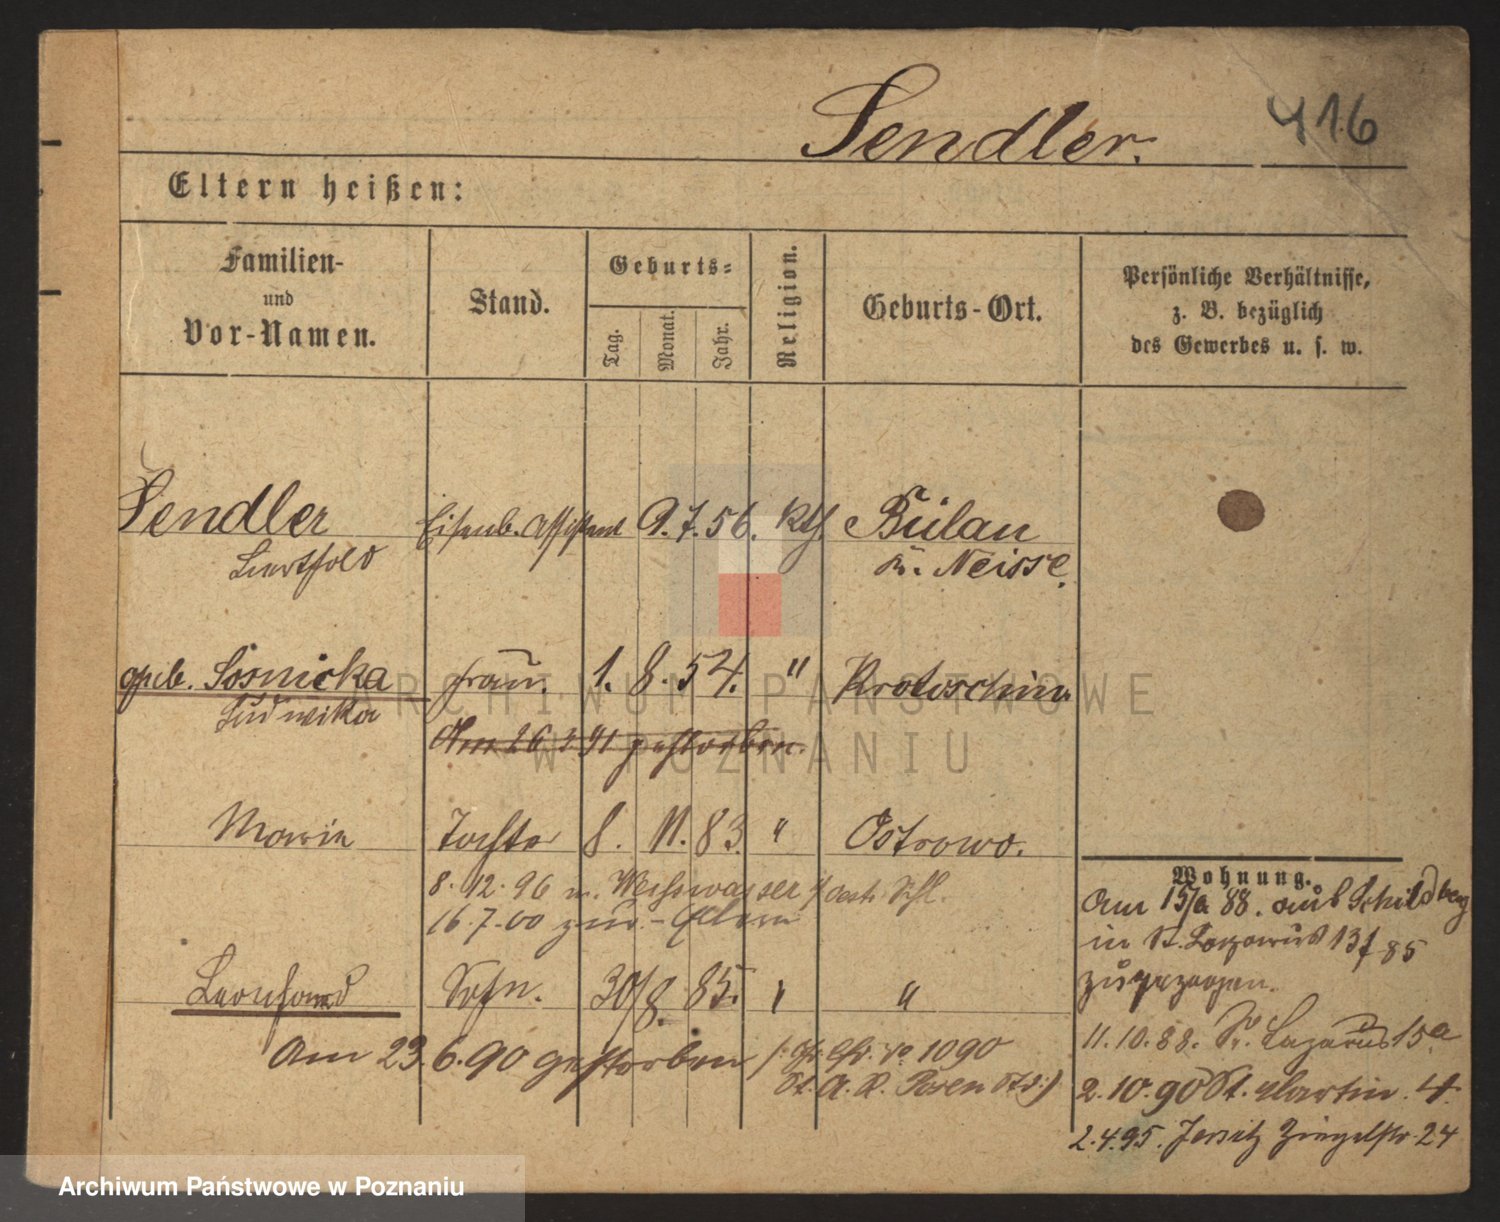 Sendler.
416
Eltern heißen:
Familien-
und
Vor-Namen.
Stand.
Geburts-
Tag.
Monat.
Jahr.
Religion.
Geburts-Ort.
Persönliche Verhältnisse,
z. B. bezüglich
des Gewerbes u. s. w.
Sendler Eisenb. Assistent 9. 7. 56. kth. Bülau
Kr. Neisse.
geb. Sosnicka Frau. 1. 8. 54. " Krotoschin
Ludwika
Am 26 91 gestorben.
ARCHIWUM PAŃSTWOWE
W POZNANIU
Marie Tochter 8. 11. 83. " Ostrowo.
8. 12. 96 n. Weisswasser oestr. Schl.
16. 7. 00 zur. - Eltern
Leonhard Sohn. 30/8. 85. " "
Am 23. 6. 90 gestorben 1090
St. A. R. Posen
Wohnung.
Am 15/ 88. aus Schildberg
in St. Lazarus 13 85
zugezogen.
11. 10. 88. St. Lazarus 15a
2. 10. 90 St. Martin. 4.
2. 4. 95. Jersitz Ziegelstr. 24
Archiwum Państwowe w Poznaniu